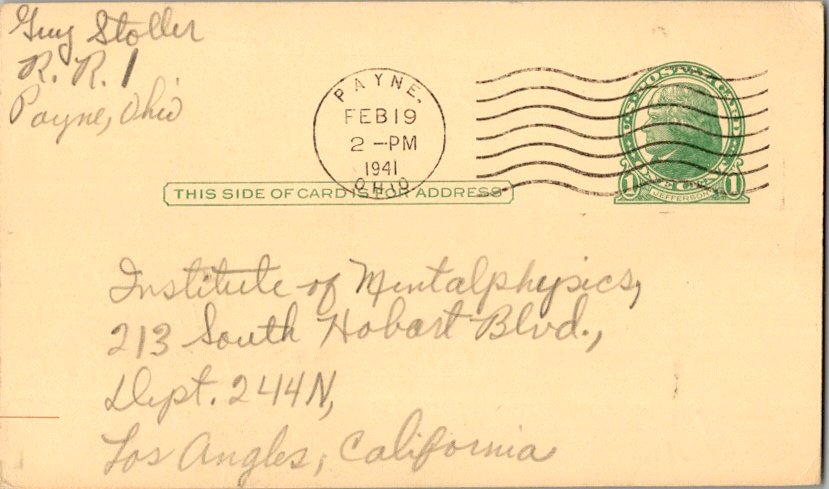 Guy Stoller
R. R. 1
Payne, Ohio
PAYNE.
FEB 19
2 -PM
1941
OHIO
U.S. POSTAL CARD
1 1
JEFFERSON
THIS SIDE OF CARD IS FOR ADDRESS
Institute of Mentalphysics,
213 South Hobart Blvd.,
Dept. 244N,
Los Angles, California